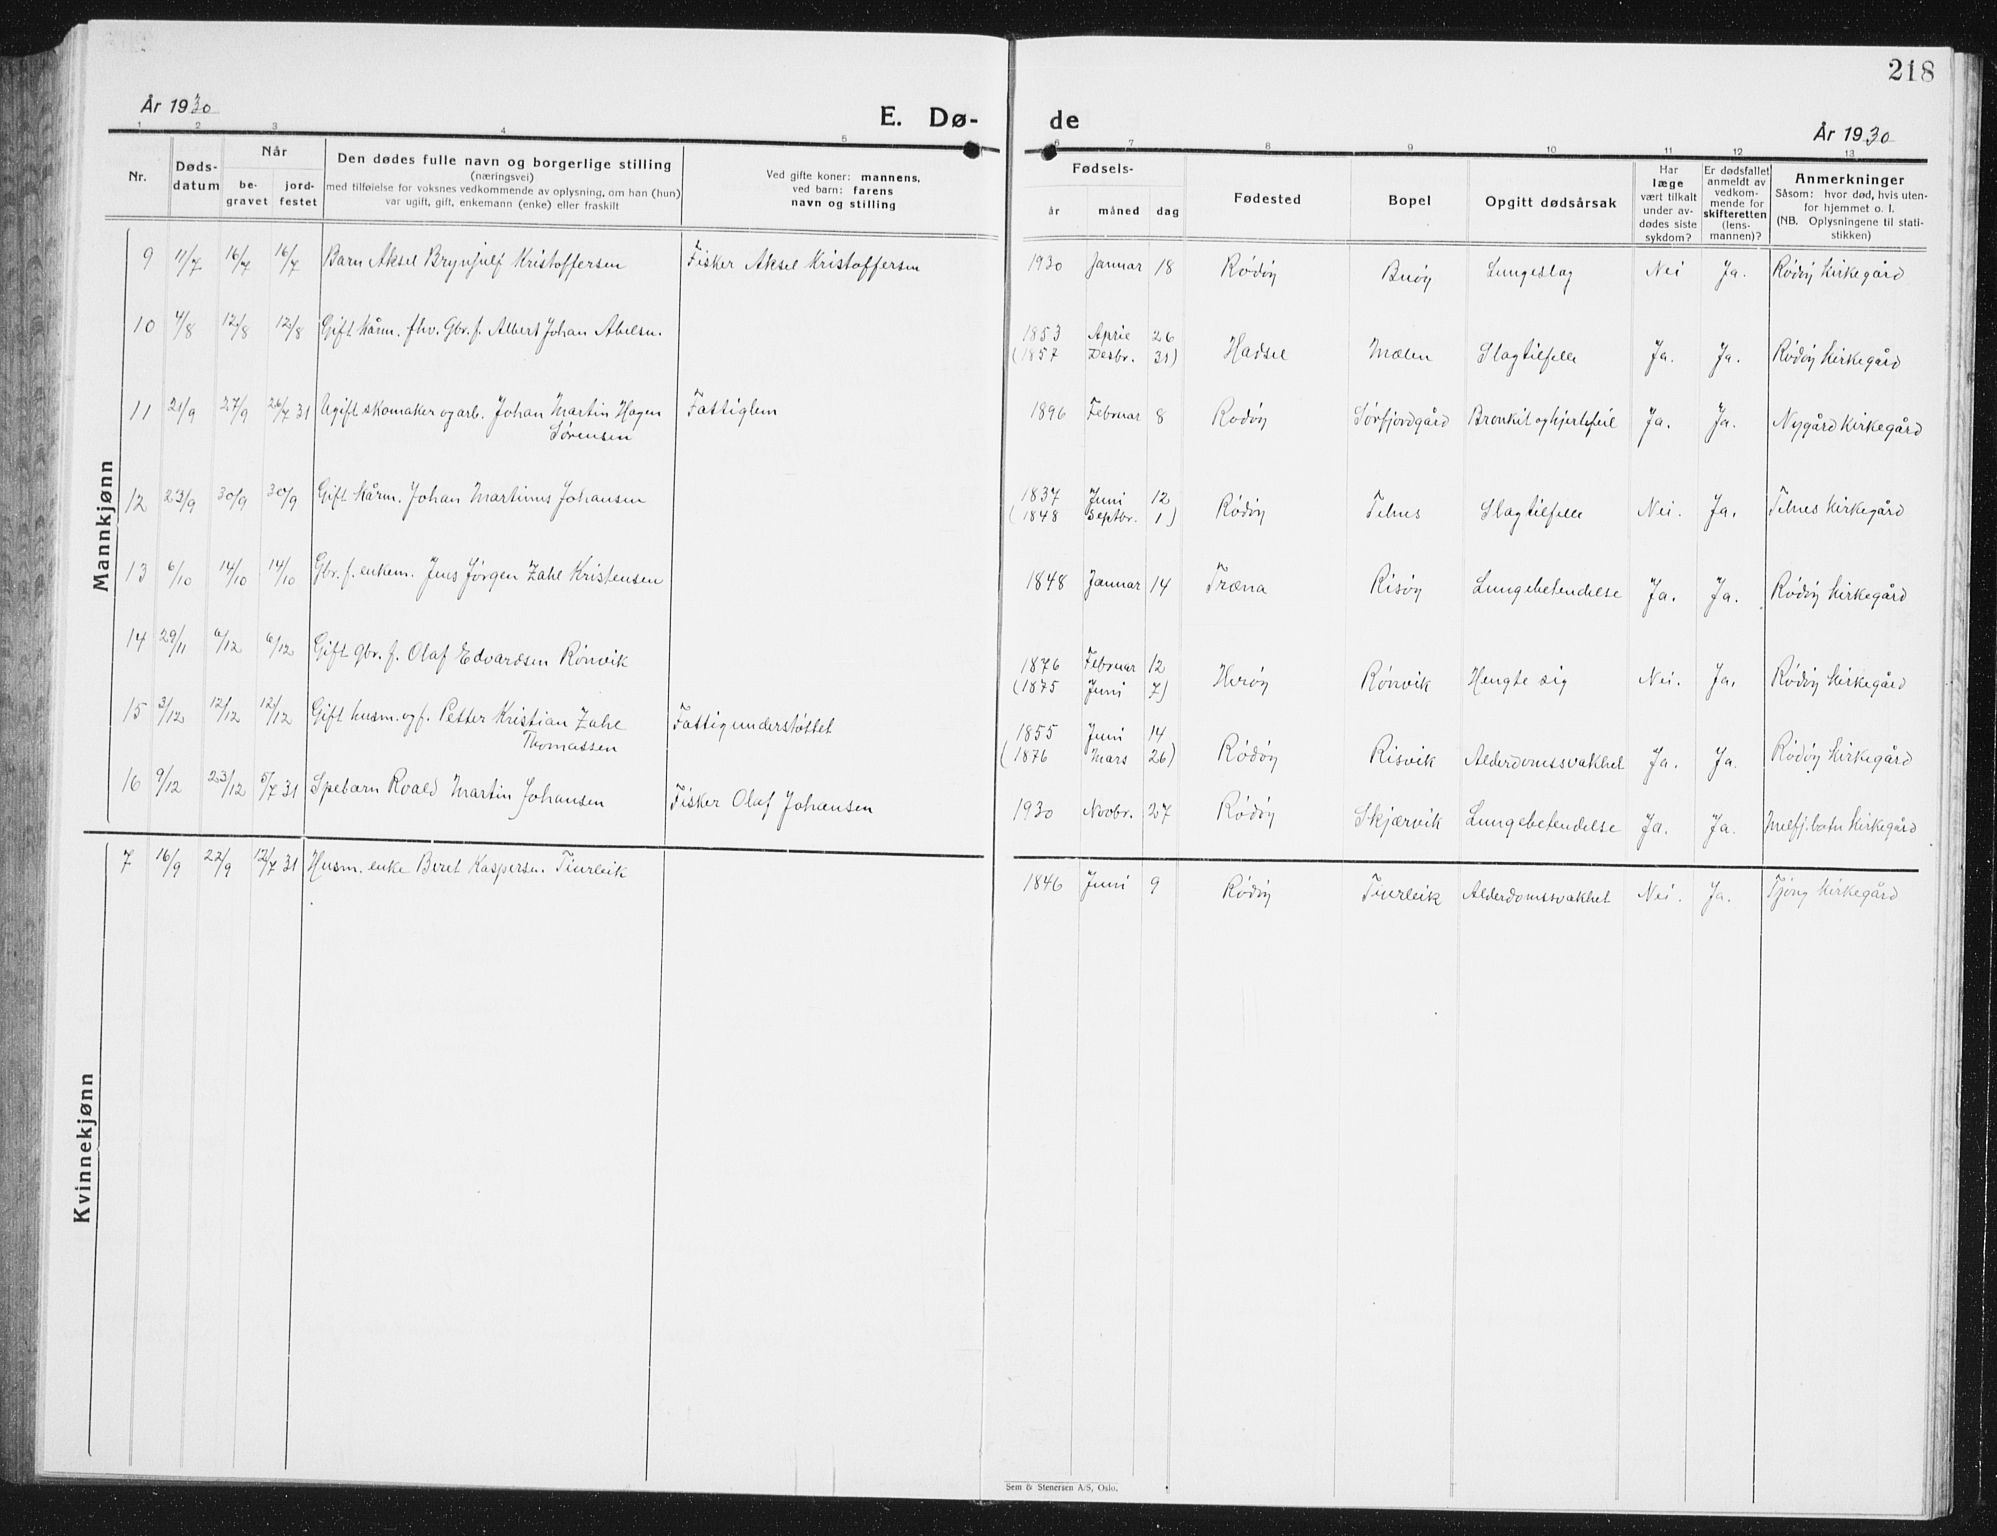 218
År 1930
E. Dø- de
År 1930
1 2 3 4 5 6 7 8 9 10 11 12 13
Nr.
Døds-
datum
Når
be-
gravet
jord-
festet
Den dødes fulle navn og borgerlige stilling
(næringsvei)
med tilføielse for voksnes vedkommende av oplysning, om han (hun)
var ugift, gift, enkemann (enke) eller fraskilt
Ved gifte koner: mannens,
ved barn: farens
navn og stilling
Fødsels-
år måned dag
Fødested
Bopel
Opgitt dødsårsak
Har
læge
vært tilkalt
under av-
dødes siste
sykdom?
Er dødsfallet
anmeldt av
vedkom-
mende for
skifteretten
(lens-
mannen)?
Anmerkninger
Såsom: hvor død, hvis uten-
for hjemmet o. l.
(NB. Oplysningene til stati-
stikken)
Mannkjønn
9 11/7 16/7 16/7 Barn Aksel Brynjulf Kristoffersen Fisker Aksel Kristoffersen 1930 Januar 18 Rödöy Buöy Lungeslag Nei Ja. Rödöy Kirkegård
10 4/8 12/8 12/8 Gift kårm. fhv. Gbr. f. Albert Johan Abelsen. 1853 April 26
(1857 Desbr. 31) Hadsel Mælen Slagtilfelle Ja. Ja. Rödöy Kirkegård
11 21/9 27/9 26/7 31 Ugift skomaker og arb. Johan Martin Hagen Fattiglem 1896 Februar 8 Rödöy Sörfjordgård Bronkit og hjertefeil Ja. Ja. Nygård Kirkegård
Sörensen
12 23/9 30/9 30/9 Gift kårm. Johan Martinus Johansen 1837 Juni 12
(1848 Septbr. 1) Rödöy Telnes Slagtilfelle Nei. Ja. Telnes Kirkegård
13 6/10 14/10 14/10 Gbr. f. enkem. Jens Jörgen Zahl Kristensen 1848 Januar 14 Træna Risöy Lungebetendelse Ja. Ja. Rödöy Kirkegård
14 29/11 6/12 6/12 Gift gbr. f. Olaf Edvardsen Rönvik 1876 Februar 12
(1875 Juni 7) Heröy Rönvik Hengte sig Nei. Ja. Rödöy Kirkegård
15 3/12 12/12 12/12 Gift husm. og f. Petter Kristian Zahl Fattigunderstöttet 1855 Juni 14
Thomassen (1876 Mars 26) Rödöy Risvik Alderdomssvakhet Ja. Ja. Rödöy Kirkegård
16 9/12 23/12 5/7 31 Spebarn Roald Martin Johansen Fisker Olaf Johansen 1930 Novbr. 27 Rödöy Skjærvik Lungebetendelse Ja. Ja. Melfj.botn Kirkegård
Kvinnekjønn
7 16/9 22/9 12/7 31 Husm. enke Beret Kaspersen. Tiurleik 1846 Juni 9 Rödöy Tiurleik Alderdomssvakhet Nei. Ja. Tjöng Kirkegård
Sem & Stenersen A/S, Oslo.